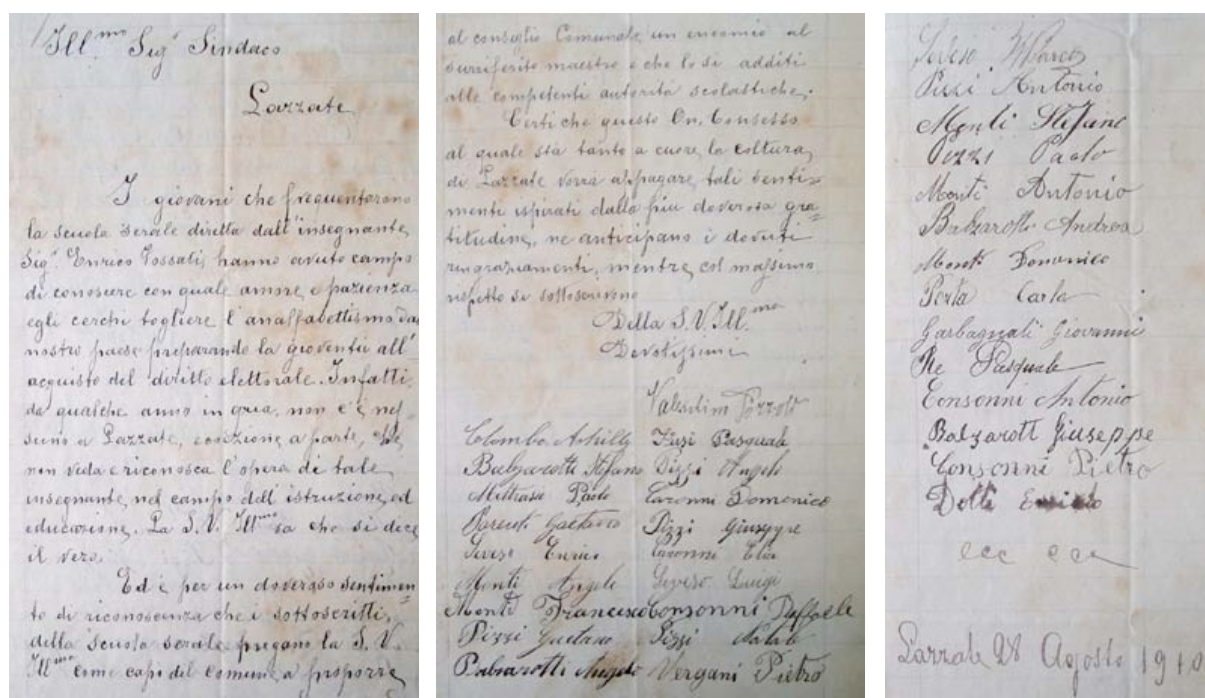 Ill.mo Sig.r Sindaco
Lazzate
I giovani che frequentarono
la scuola serale diretta dall'insegnante,
Sig.r Enrico Fossati, hanno avuto campo
di conoscere con quale amore, e pazienza
egli cerchi togliere l'analfabettismo dal
nostro paese preparando la gioventù all'
acquisto del diritto elettorale. Infatti,
da qualche anno in qua, non c'è nes
suno a Lazzate, eccezione a parte, che,
non veda e riconosca l'opera di tale,
insegnante, nel campo dell'istruzione, ed
educazione. La S.V. Ill.mo sa che si dice
il vero.
Ed è per un doveroso sentimen-
to di riconoscenza che i sottoscritti,
della scuola serale, pregano la S.V.
Ill.mo come capo del Comune, a proporre,
al consiglio Comunale, un encomio al
surriferito maestro e che lo si additi
alle competenti autorità scolastiche.
Certi che questo On. Consesso
al quale stà tanto a cuore, la coltura,
di Lazzate vorrà appagare, tali senti-
menti ispirati dalla più doverosa gra-
titudine, ne anticipano i dovuti
ringraziamenti, mentre, col massimo
rispetto si sottoscrivono
Della S.V. Ill.mo
Devotissimi
Colombo Achille Fusi Pasquale
Balzarotti Stefano Pizzi Angelo
Paolo Caronni Domenico
Gaetano Pizzi Giuseppe
Seveso Enrico Caronni Elia
Monti Angelo Seveso Luigi
Monti Francesco Consonni Raffaele
Pizzi Gaetano Pizzi Natale
Angelo Vergani Pietro
Seveso Marco
Pizzi Antonio
Monti Stefano
Pizzi Paolo
Monti Antonio
Balzarotti Andrea
Monti Domenico
Porta Carlo
Garbagnati Giovanni
Re Pasquale
Consonni Antonio
Balzarott Giuseppe
Consonni Pietro
ecc ecc
Lazzate 28 Agosto 1910